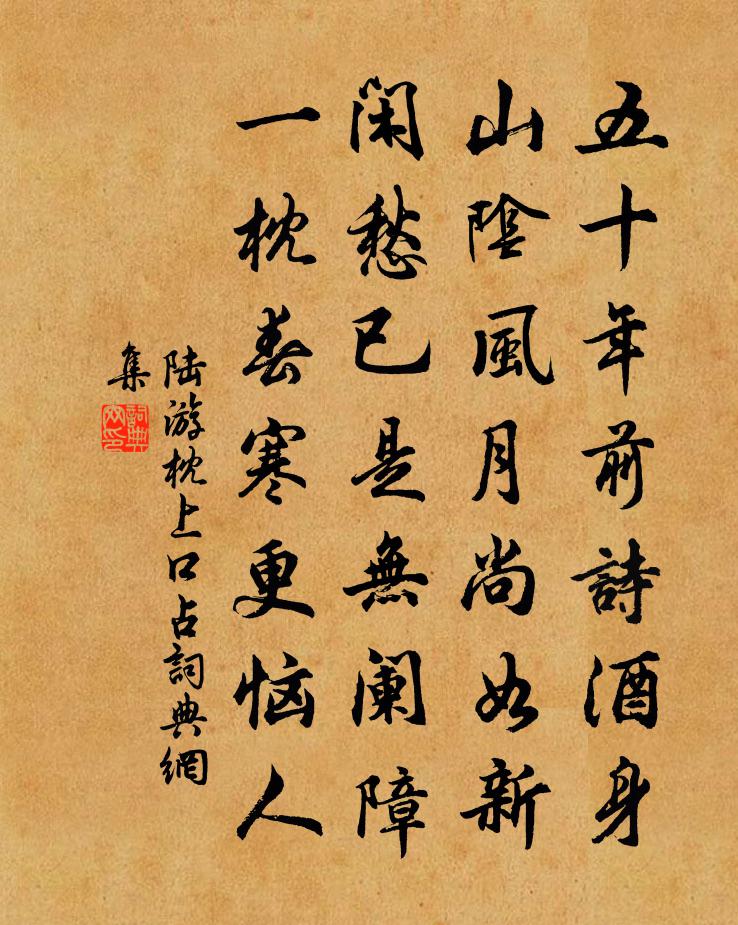 五十年前詩酒身
山陰風月尚如新
閑愁已是無阑障
一枕春寒更恼人
陆游枕上口占詞典網
集
詞典
网印